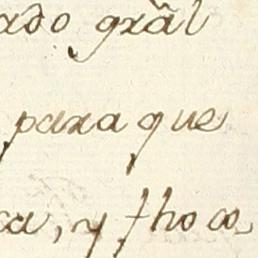 ado grãl
para que
ca, y tho co,